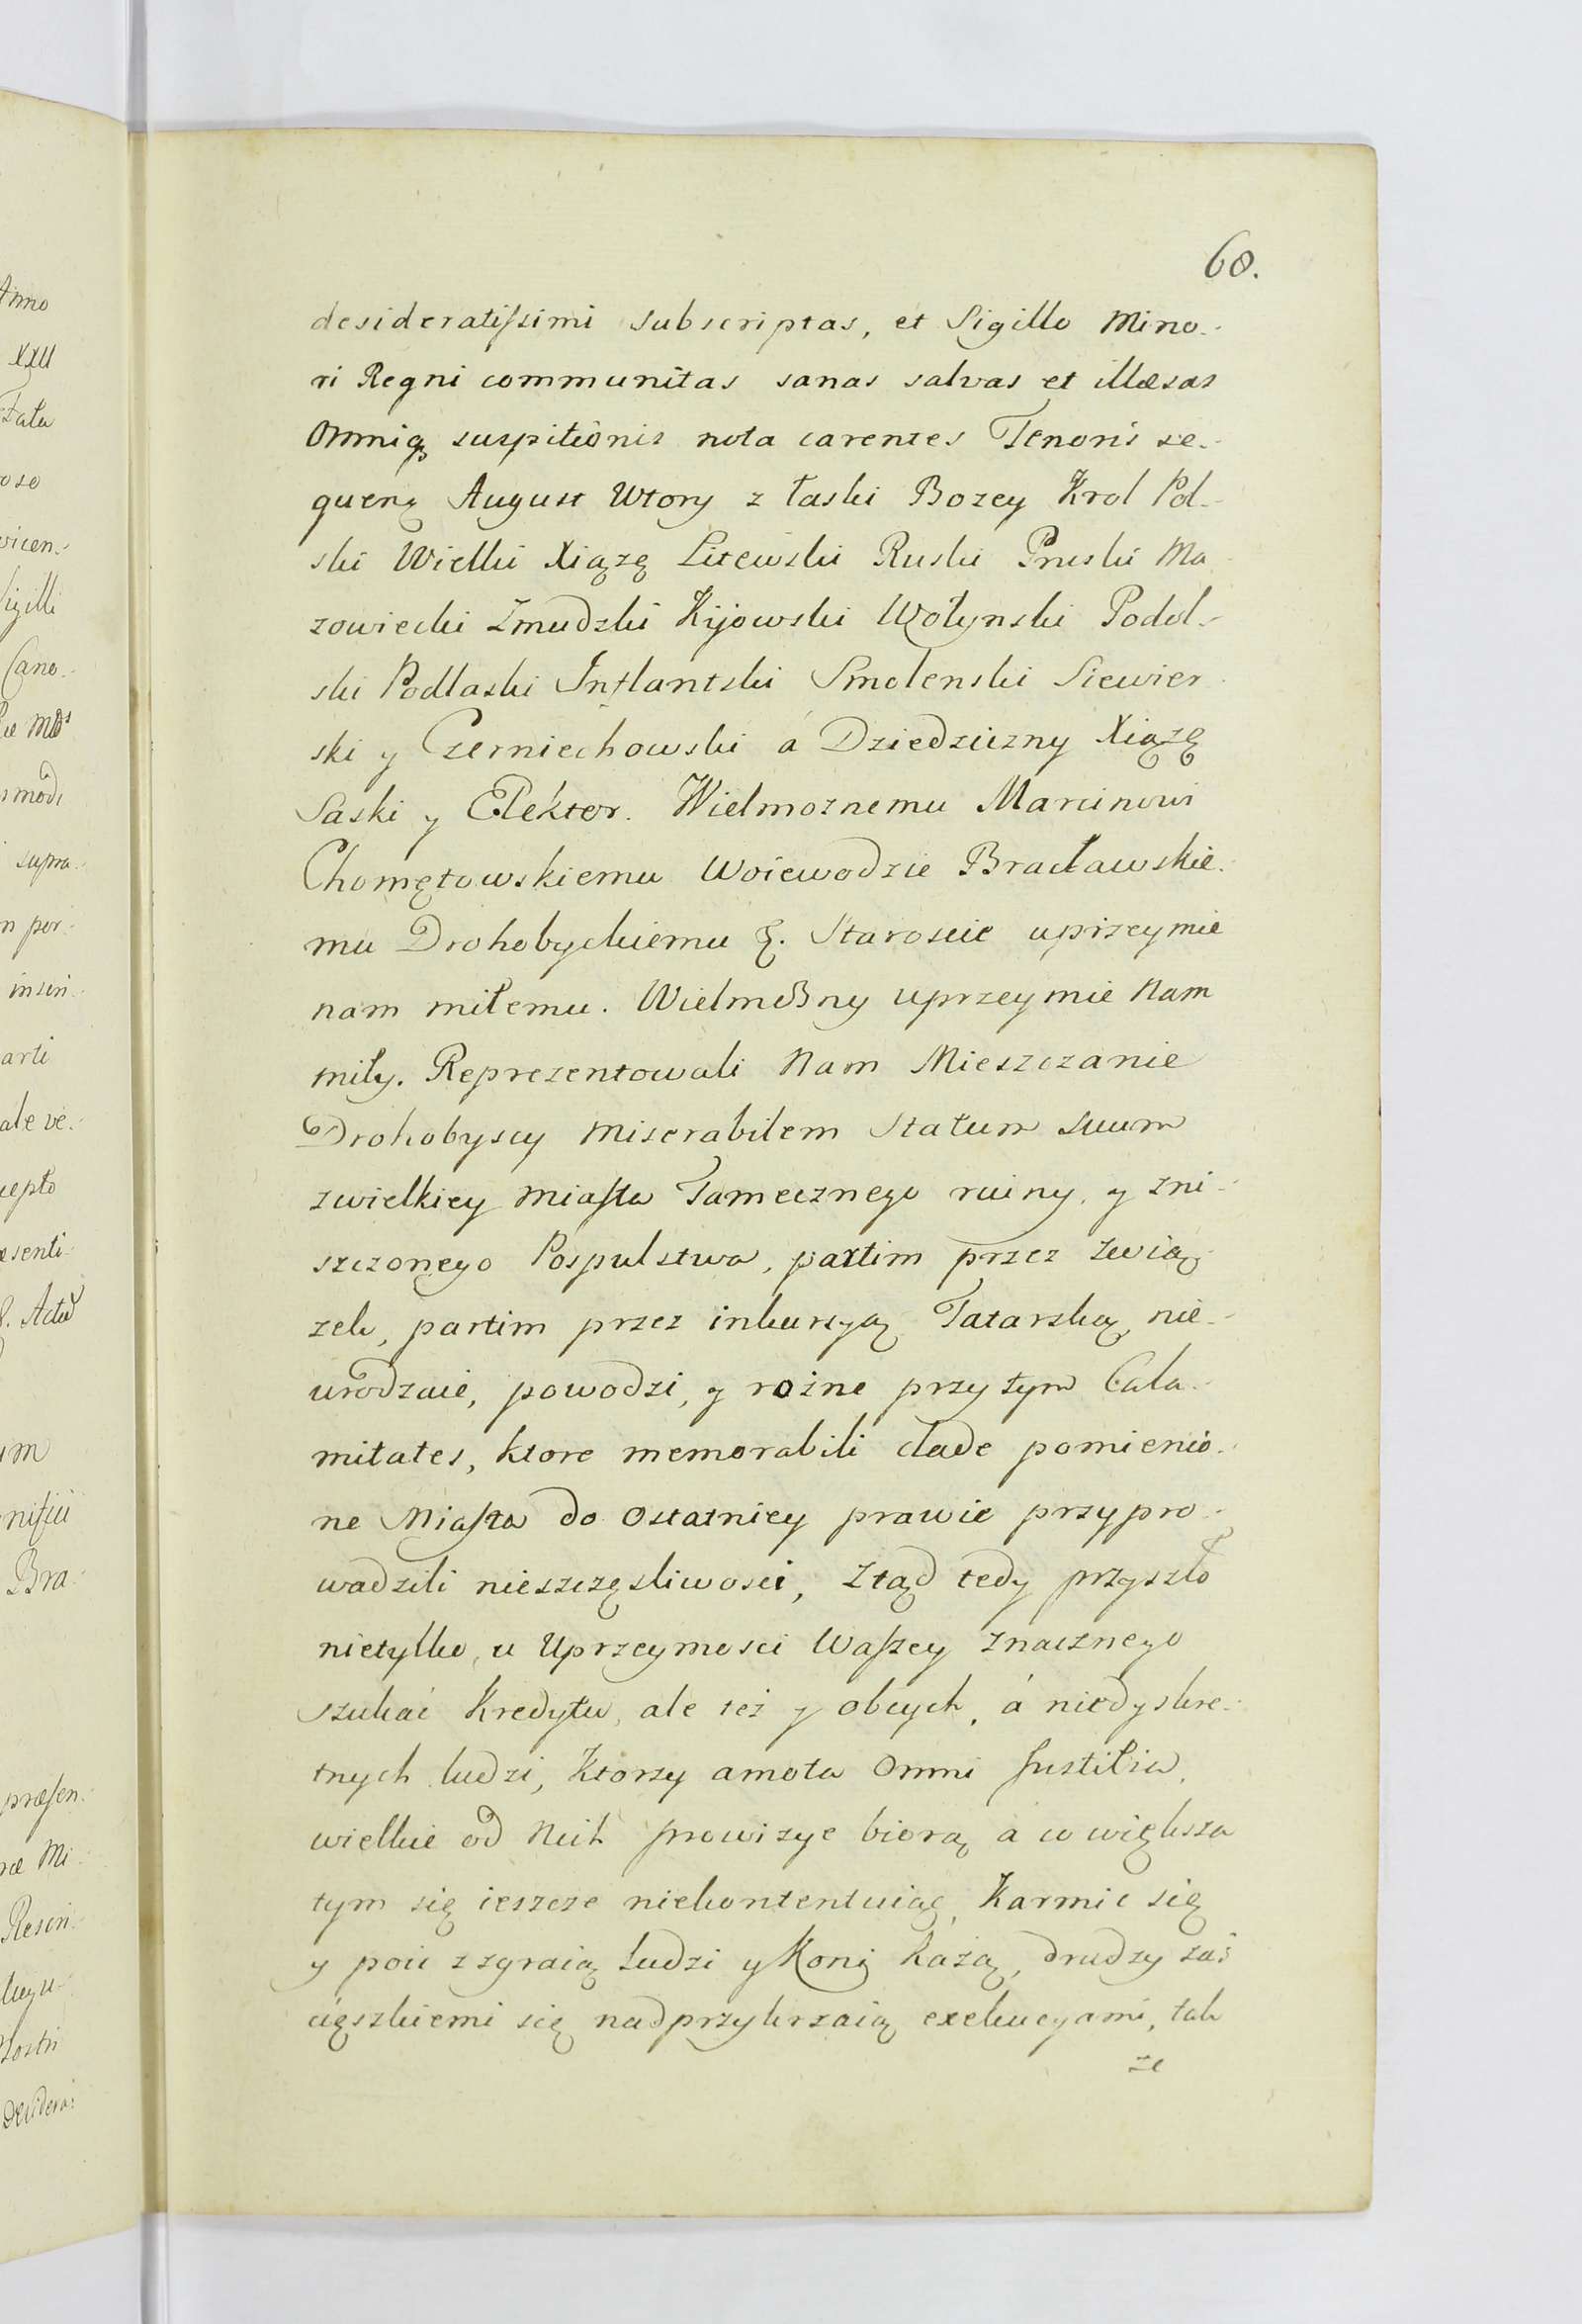 60.
desideratissimi subscriptas, et Sigillo Mino-
ri Regni communitas sanas salvas et illæsas
Omniq suspitionis nota carentes Tenoris se-
quenę August Wtory z łaski Bozey Krol Pol-
ski Wielki Xiążę Litewski Ruski Pruski Ma
zowiecki Zmudzki Kijowski Wołynski Podol-
ski Podlaski Inflantski Smolenski Siewier
ski y Czerniechowski á Dziedziczny Xiążę
Saski y Elektor. Wielmoznemu Marcinowi
Chomętowskiemu Woiewodzie Bracławskie-
mu Drohobyckiemu &. Staroscie uprzeymie
nam miłemu. Wielmożny uprzeymie Nam
miły. Reprezentowali Nam Mieszczanie
Drohobyscy Miserabilem Statum suum
zwielkiey Miasta Tamecznego ruiny, y zni-
szczonego Pospulstwa, partim przez zwią
zek, partim przez inkursyą Tatarską, nie-
urodzaie, powodzi, y rożne przytym Cala-
mitates, ktore memorabili clade pomienio-
ne Miasta do Ostatniey prawie przypro-
wadzili nieszczęsliwosci, Ztąd tedy przyszło
nietylko, u Uprzeymosci Waszey znacznego
szukać Kredytu, ale też y obcych, á niedyskre-
tnych ludzi, Ktorzy amota Omni Justitia,
wielkie od Nich prowizye biorą a co większa
tym się ieszcze niekontentuiąc, Karmic się
y poic z zgraią Ludzi y Koni każą, drudzy zaś
cięszkiemi się nadprzykrzaią exekucyami, tak
ze
Anno
XXII
Sigilli
Cano-
supra-
n per-
arti
ale ve-
cepto
Bra-
præsen-
Mi-